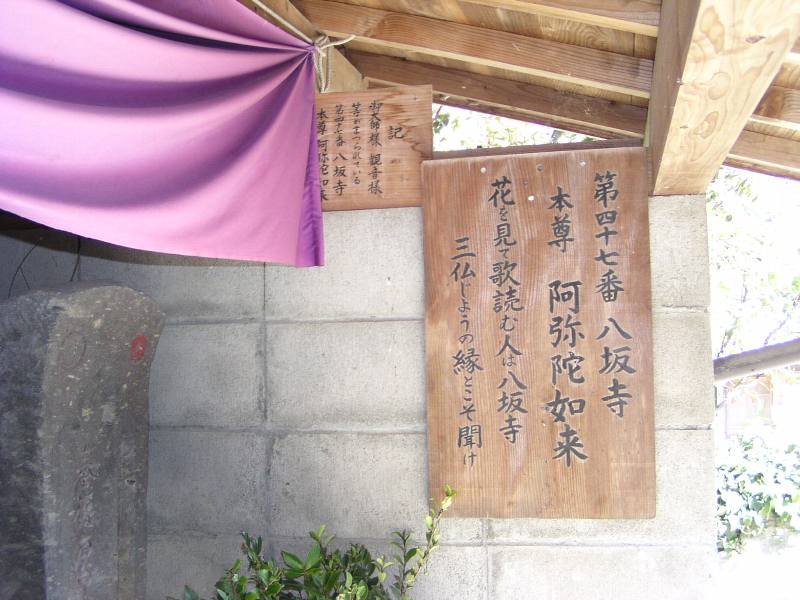 第四十七番 八坂寺
本尊 阿弥陀如来
花を見て歌読む人は八坂寺
三仏じょうの縁とこそ聞け
記
御大師様 観音様
等がまつられている
第四十七番 八坂寺
本尊 阿弥陀如来